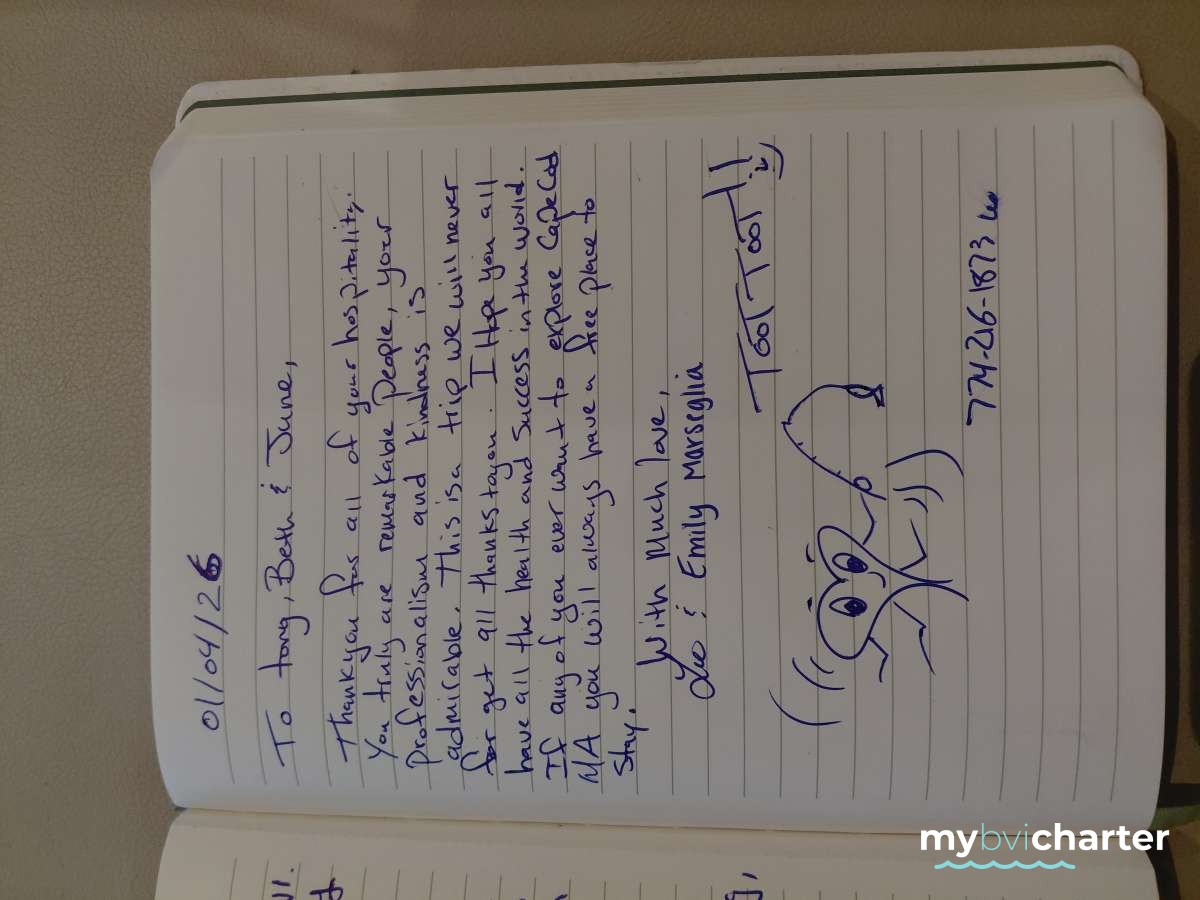 01/04/26
To tony, Beth & June,
Thankyou for all of your hospitality.
You truly are remarkable People, your
Professionalism and kindness is
admirable. This is a trip we will never
forget all thanks to you. I Hope you all
have all the health and success in the world.
If any of you ever want to explore Cape Cod
MA you will always have a free place to
stay.
With Much love,
& Emily Marseglia
TOOT TOOT!!
774-216-1873
mybvicharter